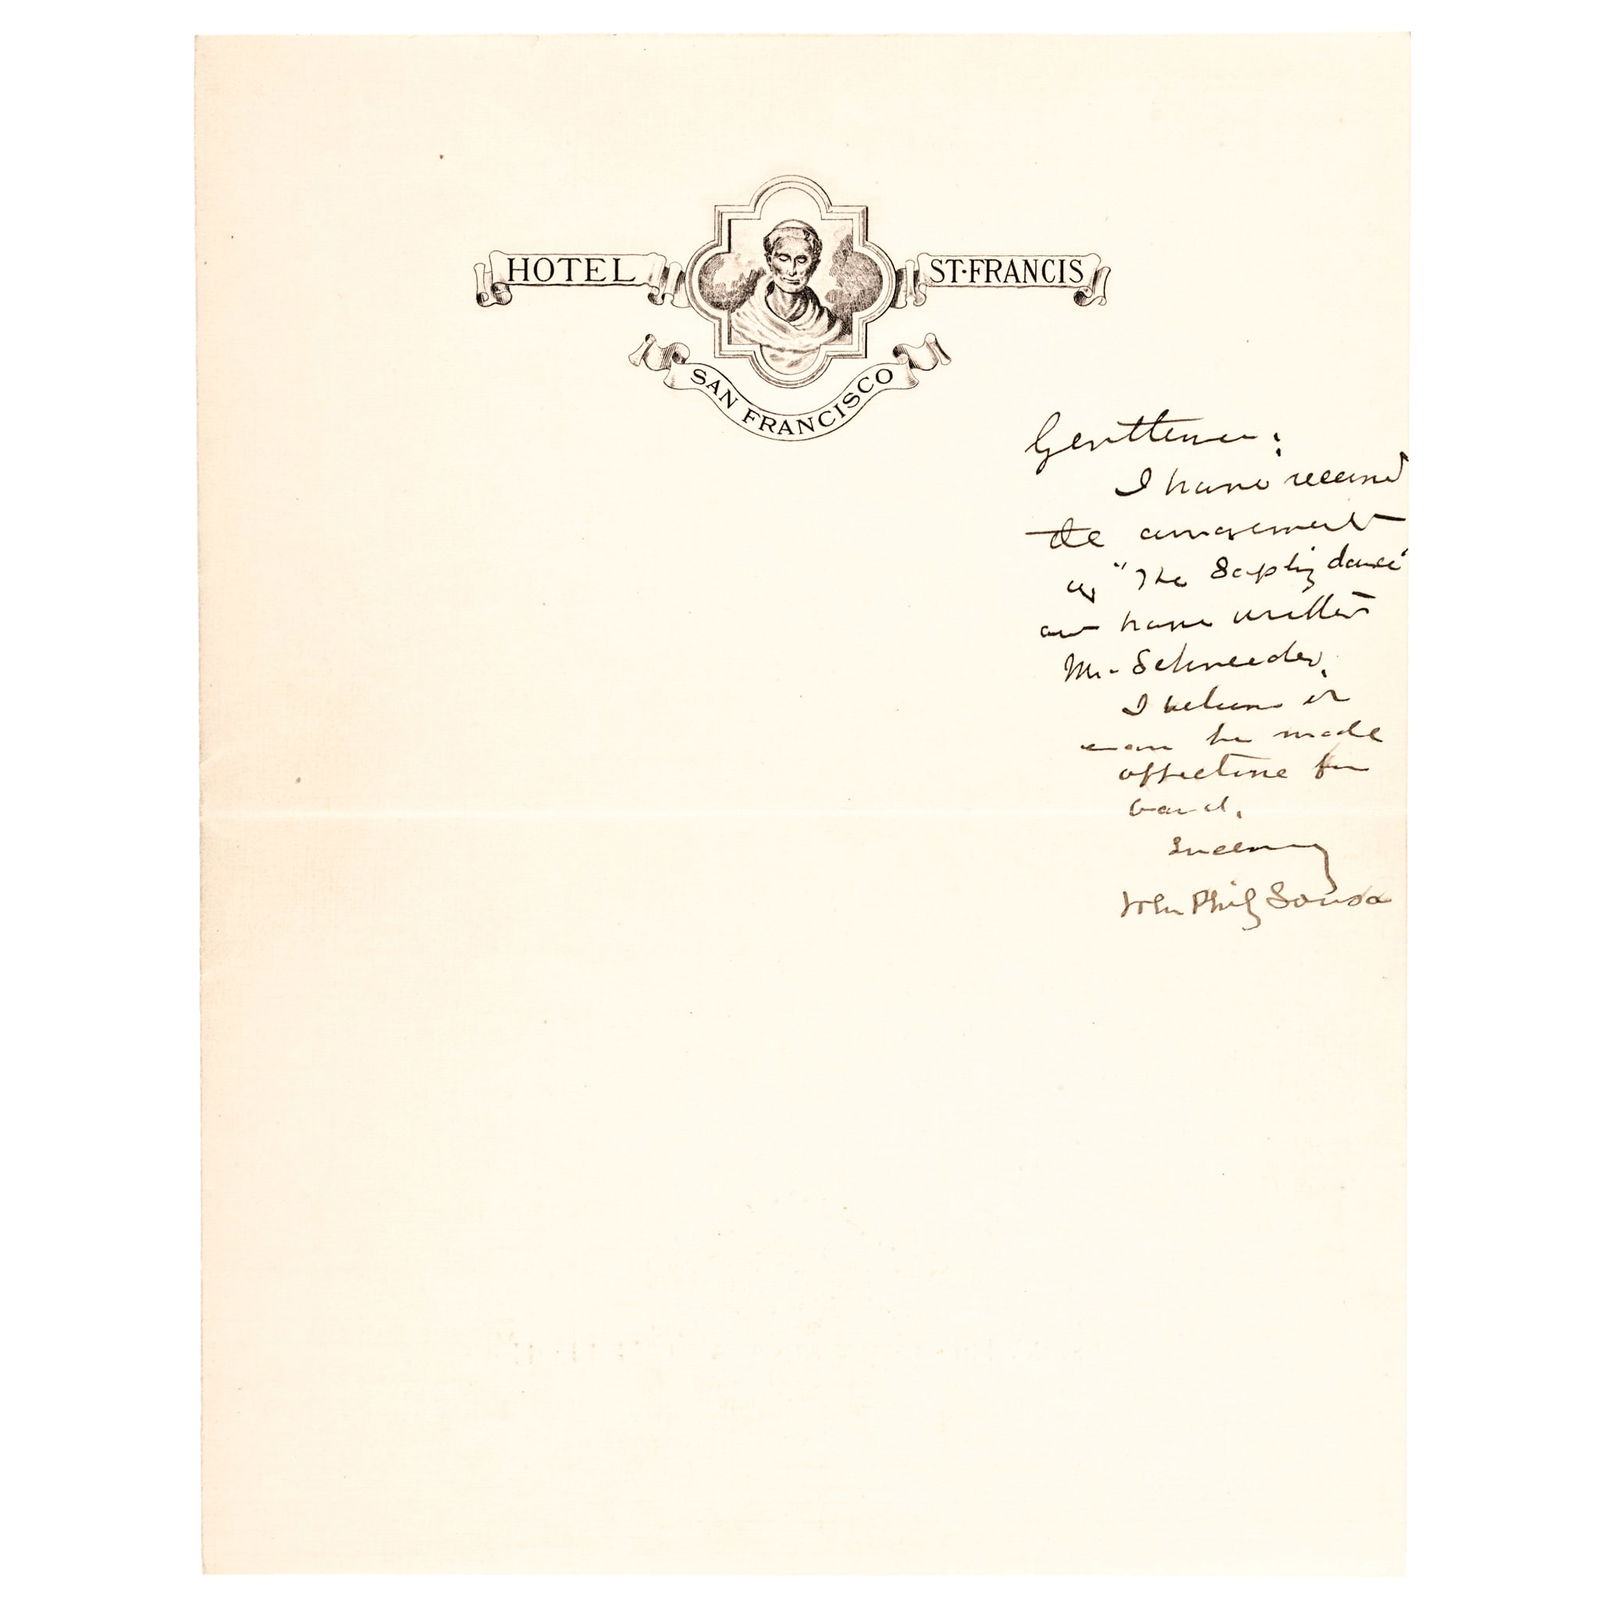 HOTEL ST·FRANCIS
SAN FRANCISCO
Gentlemen:
I have received
the arrangement
of "The dance"
and have written
Mr. Schneeder.
I believe it
can be made
effective for
band.
Sincerely
John Philip Sousa